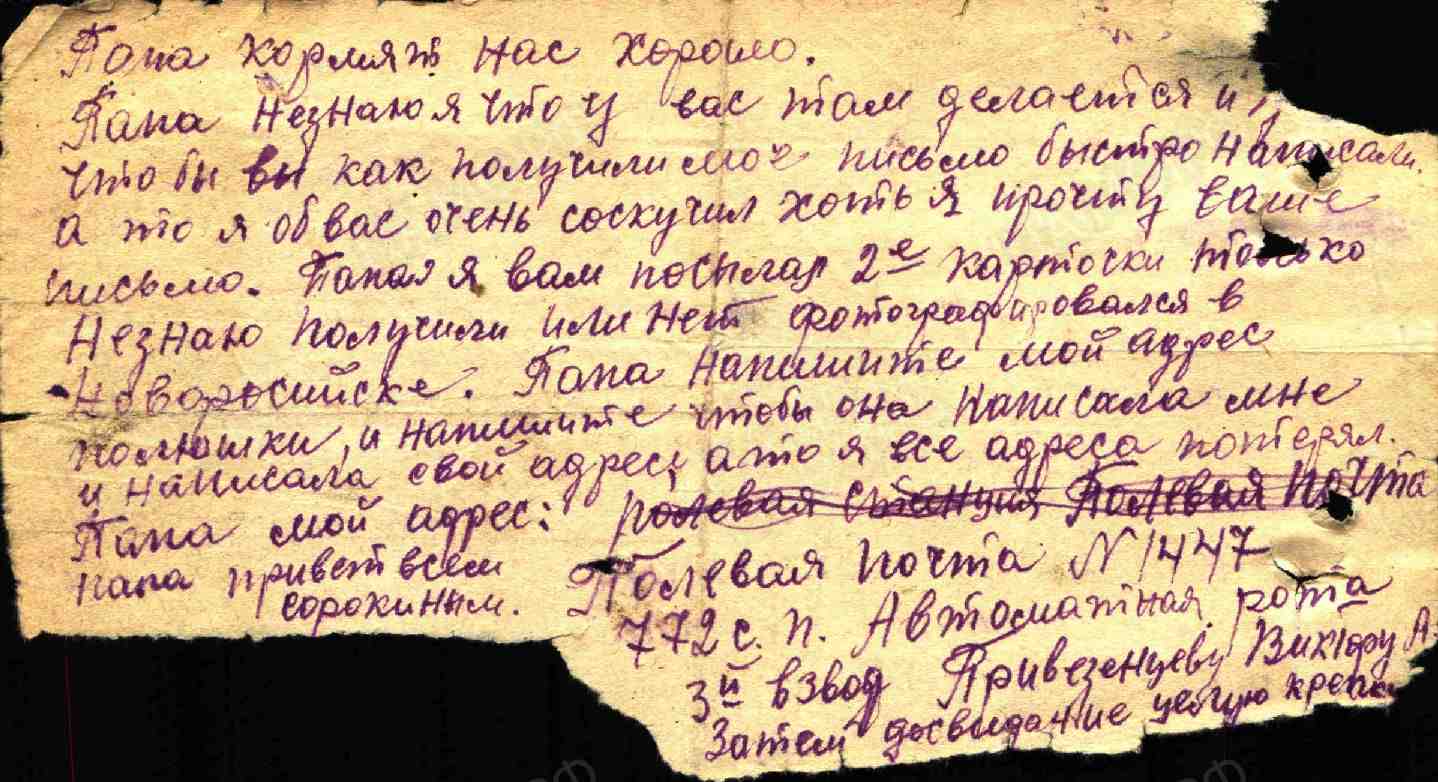 Папа кормят нас хорошо.
Папа незнаю я что у вас там делается и,
что бы вы как получили моё письмо быстро написали.
а то я об вас очень соскучил хоть я прочту ваше
письмо. Папа я вам посылал 2е карточки только
незнаю получили или нет фотографировался в
Новоросийске. Папа напишите мой адрес
полюшки, и напишите чтобы она написала мне
и написала свой адрес, а то я все адреса потерял.
Папа мой адрес: полевая станция Полевая почта
папа привет всем
сорокиным.
Полевая почта N 1447
772 с. п. Автоматная рота
3й взвод Привезенцеву Виктору А
Затем досвидание целую крепко